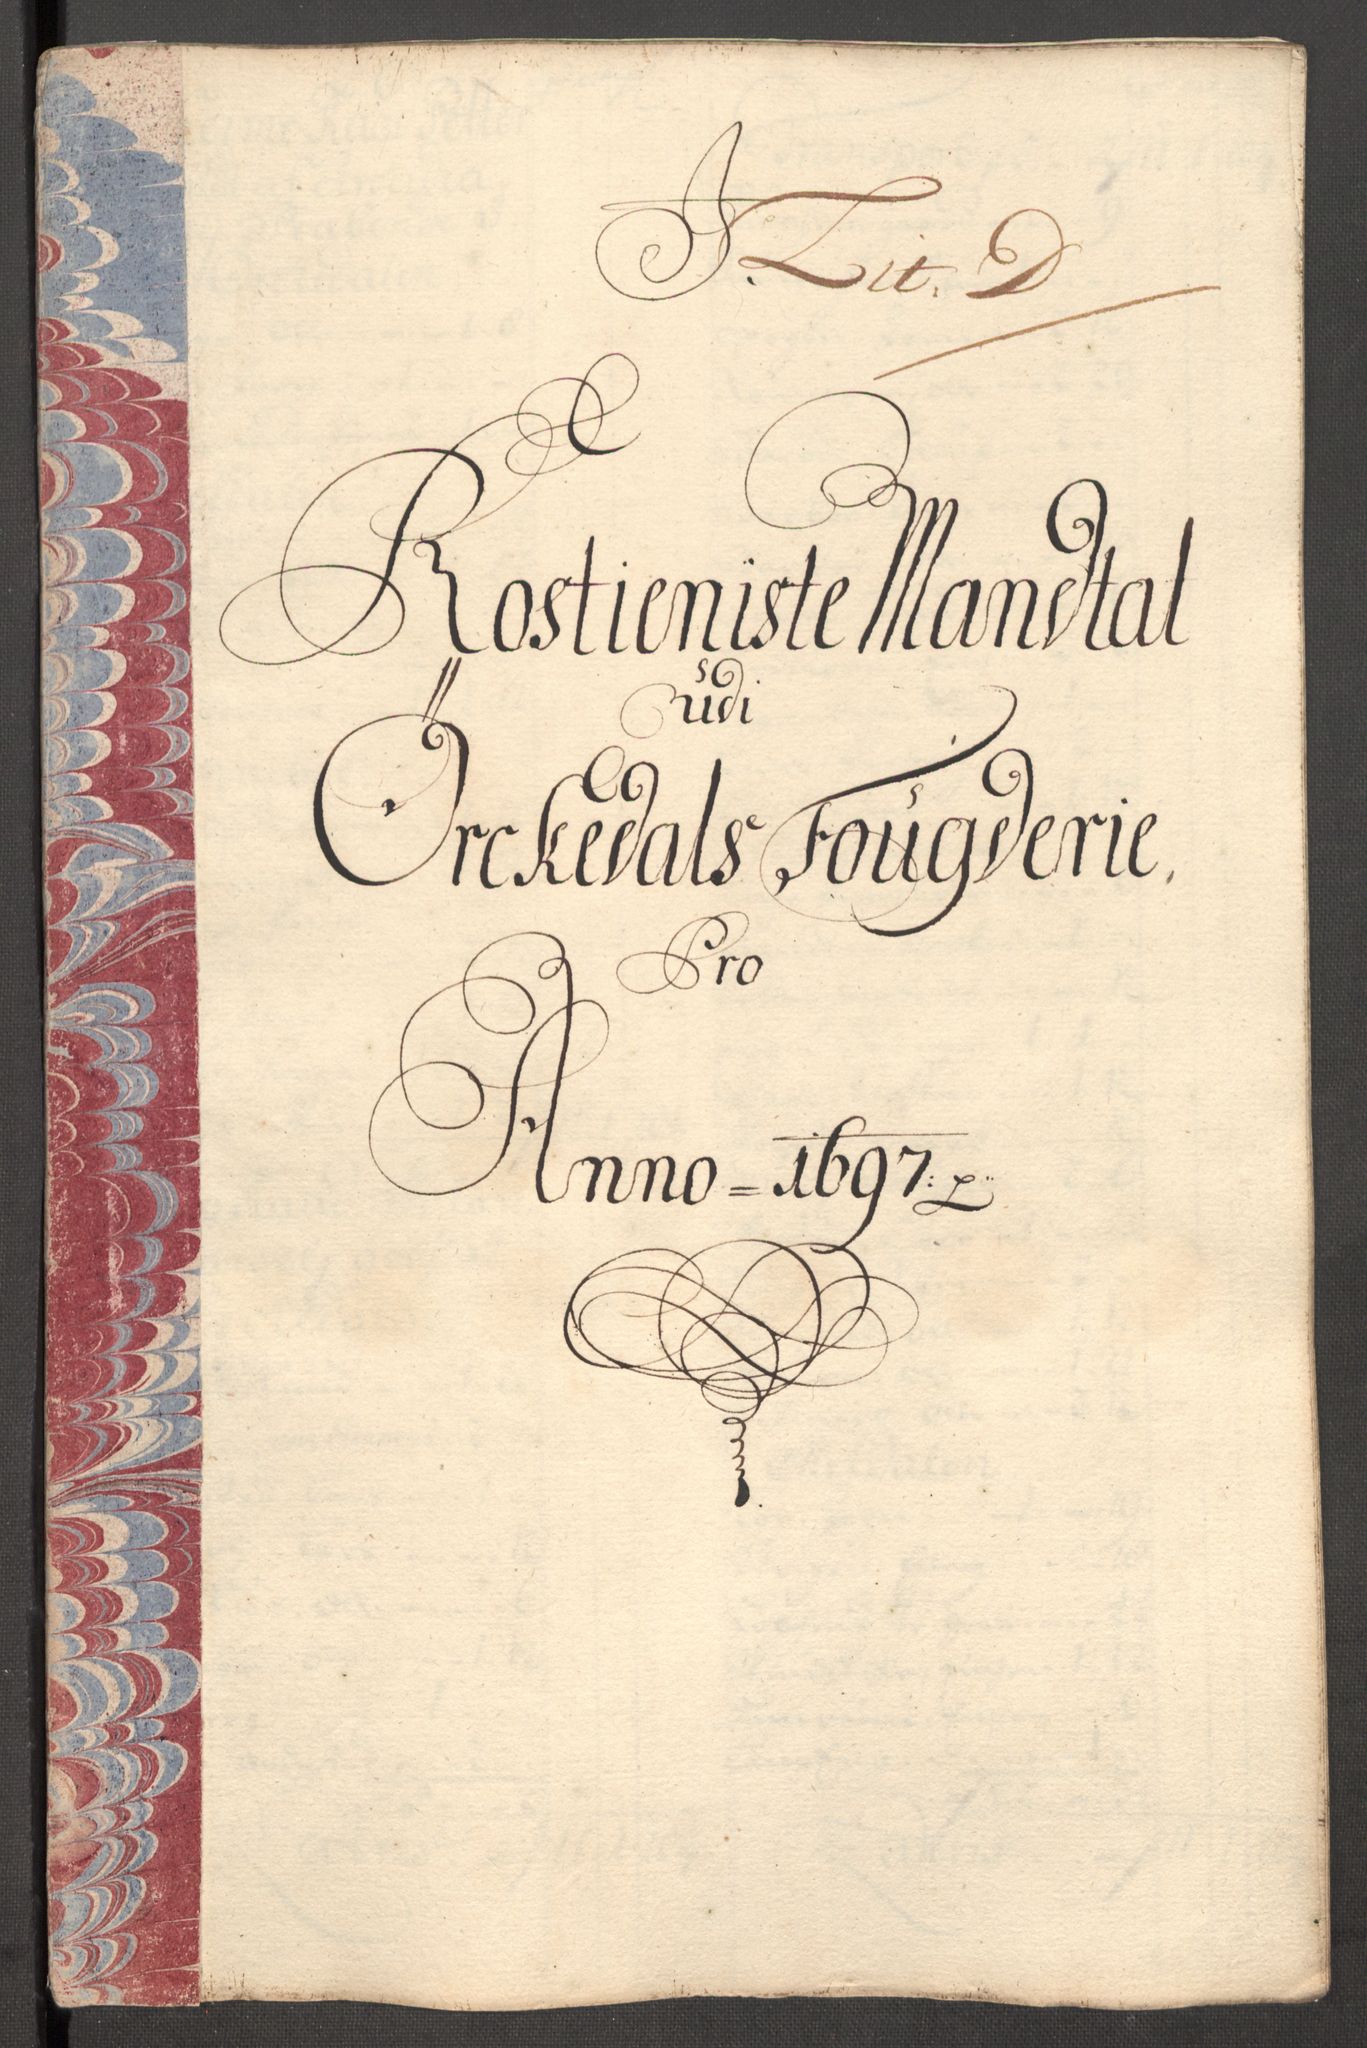 A. Lit. D
Rostieniste Mandtal
udi
Örckedals Fougderie.
Pro
Anno = 1697: